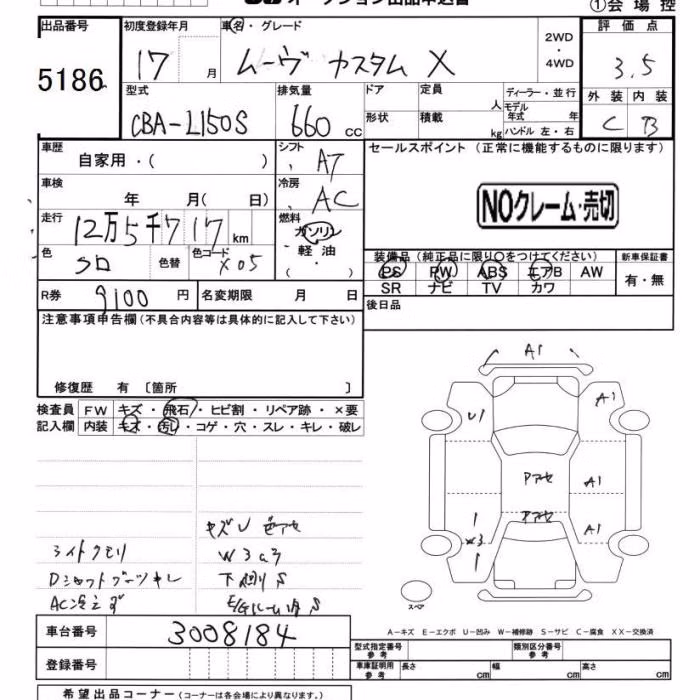 ①会場控
出品番号 初度登録年月 車名・グレード 2WD・4WD 評価点
5186 17 月 ムーヴ カスタム X 3.5
型式 排気量 ドア 定員 人 ディーラー・並行 外装 内装
CBA-L150S 660 cc 形状 積載 kg モデル年式 年 ハンドル 左・右 C B
車歴 自家用・( ) シフト AT セールスポイント (正常に機能するものに限ります)
車検 年 月( 日) 冷房 AC
NOクレーム・売切
走行 12万5千717 km 燃料 ガソリン・軽油・( )
色 クロ 色替 色コード X05
装備品 (純正品に限り○をつけてください) 新車保証書
PS PW ABS エアB AW 有・無
SR ナビ TV カワ
R券 9100 円 名変期限 月 日 後日品
注意事項申告欄(不具合内容等は具体的に記入して下さい)
修復歴 有 〔箇所 〕
検査員 FW キズ・飛石・ヒビ割・リペア跡・×要
記入欄 内装 キズ・汚レ・コゲ・穴・スレ・キレ・破レ
A1
U1 A1
Pアセ A1
W3 Pアセ A1
W3
ライトクモリ 下廻りS
Dシャフトブーツキレ
スペア
A-キズ E-エクボ U-凹み W-補修跡 S-サビ C-腐食 XX-交換済
車台番号 3008184
登録番号
型式指定番号 参考 類別区分番号 参考
車庫証明用 参考 長さ cm 幅 cm 高さ cm
希望出品コーナー (コーナーは各会場により異なります。)